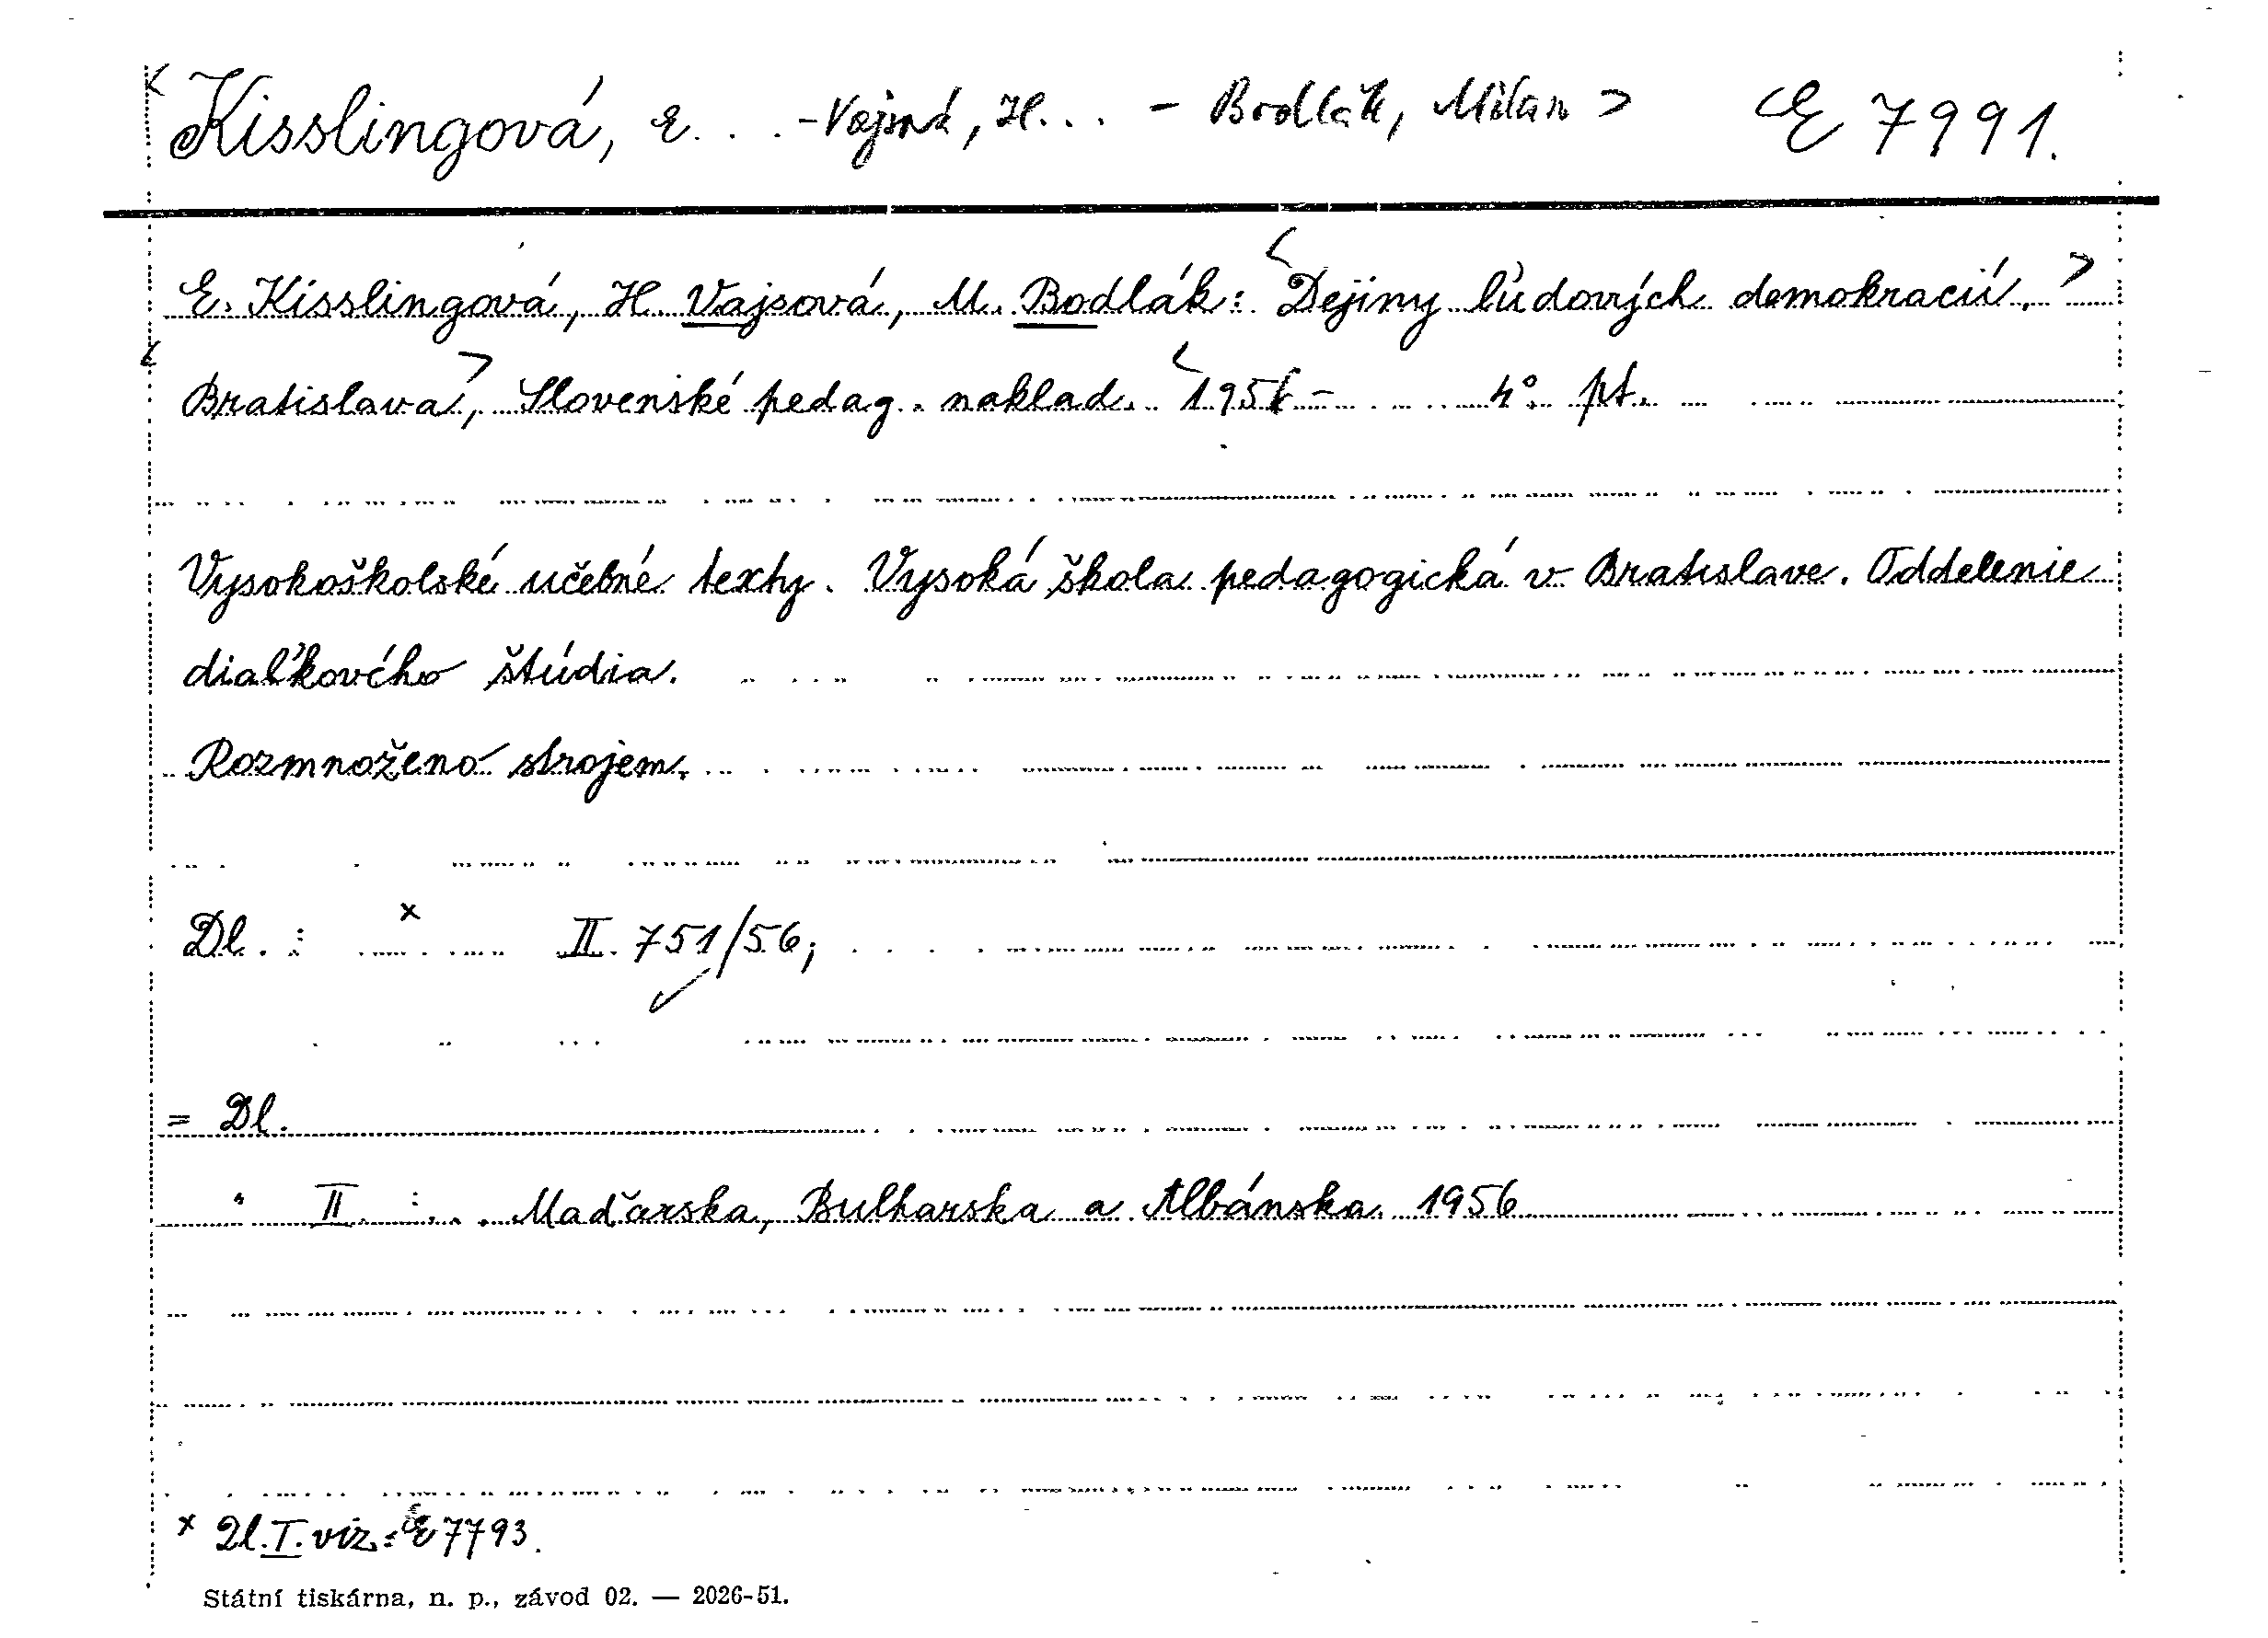 < Kisslingová, E. . . - Vajsová, H. . . - Bodlák, Milan > E 7991.
E. Kisslingová, H. Vajsová, M. Bodlák: < Dejiny ľudových demokracií. >
< Bratislava >, Slovenské pedag. naklad. < 1956 - 4° pt.
Vysokoškolské učebné texty. Vysoká škola pedagogická v Bratislave. Oddelenie
diaľkového štúdia.
Rozmnoženo strojem.
Dl. : x II. 751/56;
= Dl.
" II. : . . . Maďarska, Bulharska a Albánska. 1956
x Dl. I. viz: E 7793.
Státní tiskárna, n. p., závod 02. — 2026-51.